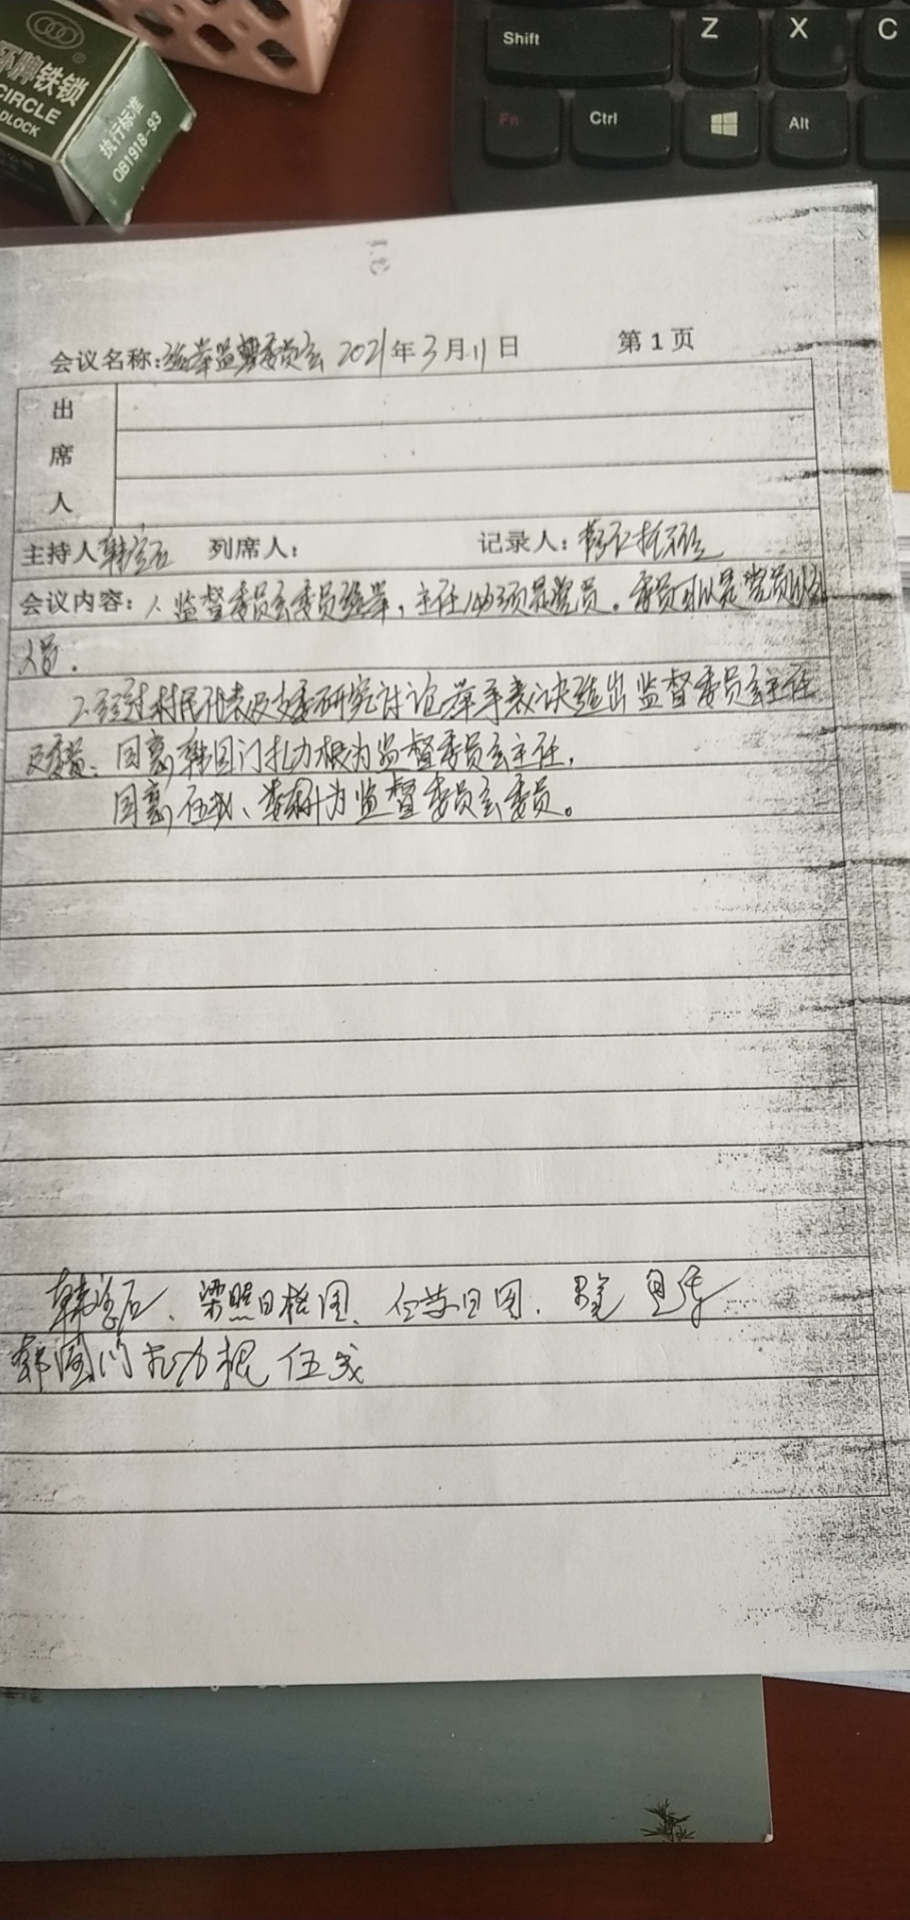 环牌铁锁
CIRCLE
DLOCK
执行标准
QB1918-93
Shift
Z
X
C
Fn
Ctrl
Alt
会议名称:选举监督委员会 2021年3月11日 第1页
出
席
人
主持人 列席人: 记录人:
会议内容: 1、监督委员会委员选举,主任必须是党员。委员可以是党员
人员。
2、经过村民代表及支委研究讨论举手表决选出监督委员会主任
及委员: 同意韩国门扎力根为监督委员会主任,
同意伍我、为监督委员会委员。
梁照日格图、
韩国门扎力根 伍我